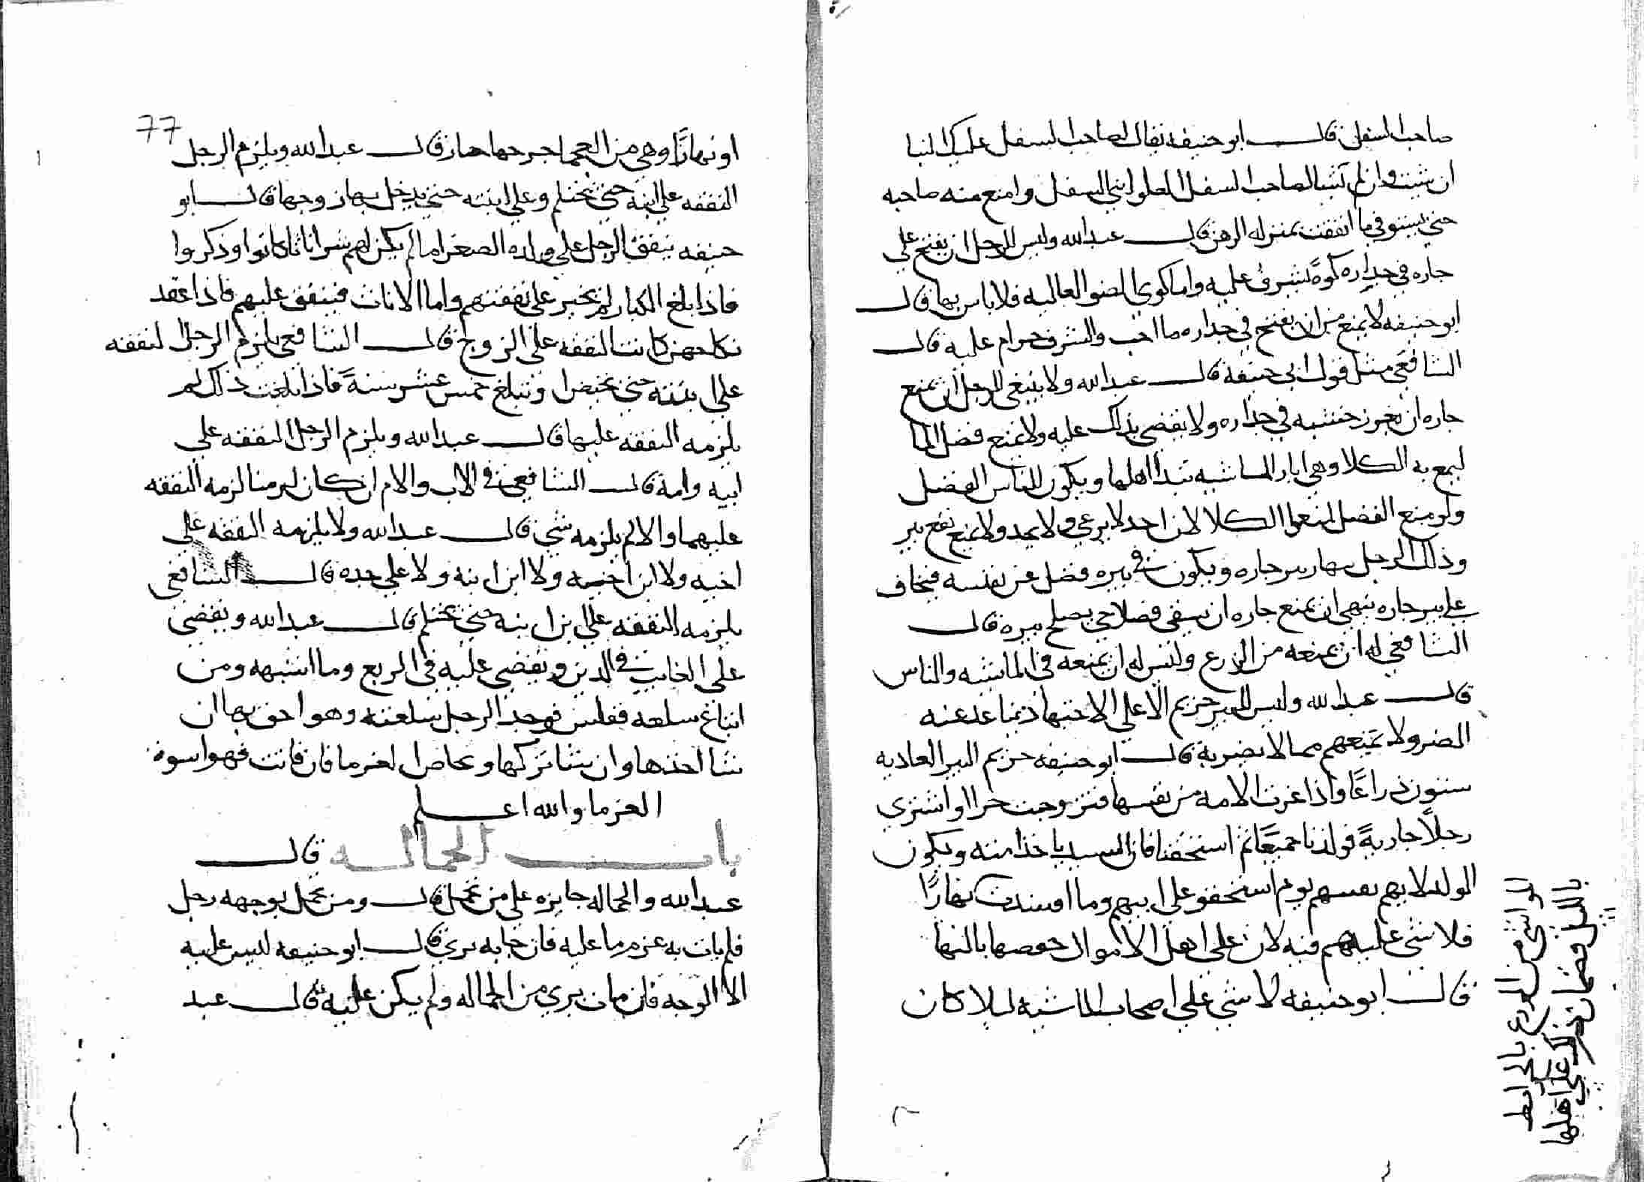 صاحب السفلي قال ابو حنيفه يقال لصاحب السفل عليك البنا
ان شيت وان لم تشا لصاحب السفل العلو ابني السفل وامنع منه صاحبه
حتى يستوفي ما انفقت بمنزله الرهن قال عبد الله وليس للرجل ان يفتح على
جاره في جداره كوه تشرف عليه واما كوي الضو العاليه فلا باس بها قال
ابو حنيفه لا يمنع من ان يفتح في جداره ما احب والشرف حرام عليه قال
الشافعي مثل قول ابي حنيفه قال عبد الله ولا ينبغي للرجل ان يمنع
جاره ان يغرز خشبه في جداره ولا يقضي بذلك عليه ولا يمنع فضل الما
ليمنع به الكلا وهي ابار الماشيه تبدا اهلها ويكون للناس الفضل
ولو منع الفضل لمنعوا الكلا لان احد لا يرعى ولا يمنع نقع بير
وذلك الرجل ينهار بير جاره ويكون في بيره فضل عن نفسه فيخاف
على بير جاره نهي ان يمنع جاره ان يسقي فضلا حتى يصلح بيره قال
الشافعي له ان يمنعه من الزرع وليس له ان يمنعه في الماشيه والناس
قال عبد الله وليس للبير حريم الا على الاجتهاد بما عنه
الضر ولا يمنعهم مما لا يضر به قال ابو حنيفه حريم البير العاديه
ستون ذراعا واذا غرت الامه من نفسها فتزوجت حرا او اشترى
رجلا جاريه فولدتا جميعا ثم استحقتا فان السيد ياخذ امته ويكون
الولد لابيهم بقيمتهم يوم استحقو على ابيهم وما افسدت نهارا
فلا شي عليهم فيه لان على اهل الاموال حفظها بالنها
قال ابو حنيفه لا شي على اصحاب الماشيه ليلا كان
المواشي من الزرع بالحوايط
بالليل فضمان ذلك على اهلها
77
او نهارا وهي من العجما جرحها جبار قال عبد الله ويلزم الرجل
النفقه على ابنه حتى يحتلم وعلى ابنته حتى يدخل بها زوجها قال ابو
حنيفه ينفق الرجل على ولده الصغير اما لم يكن لهم شي اناثا كانوا او ذكروا
فاذا بلغ الكبار لم يجبر على نفقتهم واما الاناث فينفق عليهم فاذا عقد
نكاحهن كانت النفقه على الزوج قال الشافعي يلزم الرجل لنفقه
على ابنته حتى تحيض او تبلغ خمس عشر سنة فاذا بلغت ذلك لم
يلزمه النفقه عليها قال عبد الله ويلزم الرجل النفقه على
ابيه وامه قال الشافعي في الاب والام ان كان زمنا لزمه النفقه
عليهما والا لم يلزمه شي قال عبد الله ولا يلزمه النفقه على
اخيه ولا ابن اخيه ولا ابن ابنه ولا على جده قال الشافعي
يلزمه النفقه على ابن ابنه حتى يحتلم قال عبد الله ويقضى
على الغايب في الدين ويقضى عليه في الربع وما اشبهه ومن
ابتاع سلعه ففلس فوجد الرجل سلعته وهو احق بها ان
شا اخذها وان شا تركها وحاص الغرما فان فاتت فهو اسوة
الغرما والله اعلم
باب الحماله قال
عبد الله والحماله جايزه على من تحمل قال ومن تحمل بوجهه رجل
فلم يات به غرم ما عليه فان جا به بري قال ابو حنيفه ليس عليه
الا الوجه فان مات بري من الحماله ولم يكن عليه قال عبد